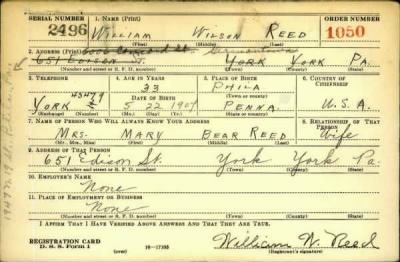 SERIAL NUMBER 1. NAME (Print) ORDER NUMBER
2496 WILLIAM WILSON REED 1050
(First) (Middle) (Last)
2. ADDRESS (Print)
651 EDISON ST. YORK YORK PA.
(Number and street or R. F. D. number) (Town) (County) (State)
3. TELEPHONE 4. AGE IN YEARS 5. PLACE OF BIRTH 6. COUNTRY OF CITIZENSHIP
33 PHILA
(Town or county)
YORK DATE OF BIRTH PENNA. U.S.A.
5 22 1907
(Exchange) (Number) (Mo.) (Day) (Yr.) (State or country)
7. NAME OF PERSON WHO WILL ALWAYS KNOW YOUR ADDRESS 8. RELATIONSHIP OF THAT PERSON
MRS. MARY BEAR REED Wife
(Mr., Mrs., Miss) (First) (Middle) (Last)
9. ADDRESS OF THAT PERSON
651 Edison St. York York Pa.
(Number and street or R. F. D. number) (Town) (County) (State)
10. EMPLOYER'S NAME
None
11. PLACE OF EMPLOYMENT OR BUSINESS
None
(Number and street or R. F. D. number) (Town) (County) (State)
I AFFIRM THAT I HAVE VERIFIED ABOVE ANSWERS AND THAT THEY ARE TRUE.
REGISTRATION CARD
D. S. S. Form 1 (over) 16-17105 William W. Reed
(Registrant's signature)